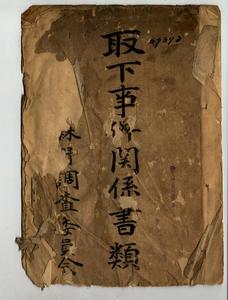 取下事件関係書類
調査委員会